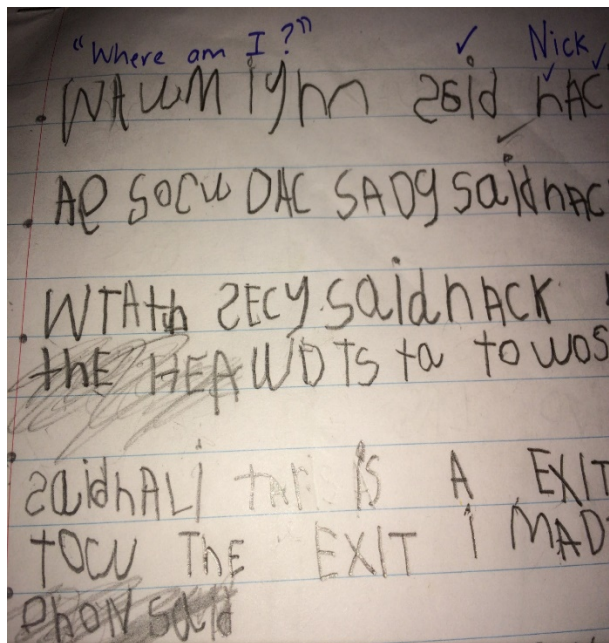 "Where am I?" ✓ Nick ✓
WAWM iyhn said nAC
AP SOCW DAC SADY said nAC
WTAth SECY said nACK
thE HEAWDTS ta towos
said nALi tAr iS A EXIT
TOCW ThE EXIT i MAD
PhoN said